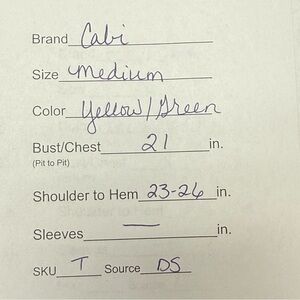 Brand Cabi
Size Medium
Color Yellow/Green
Bust/Chest 21 in.
(Pit to Pit)
Shoulder to Hem 23-26 in.
Sleeves — in.
SKU T Source DS